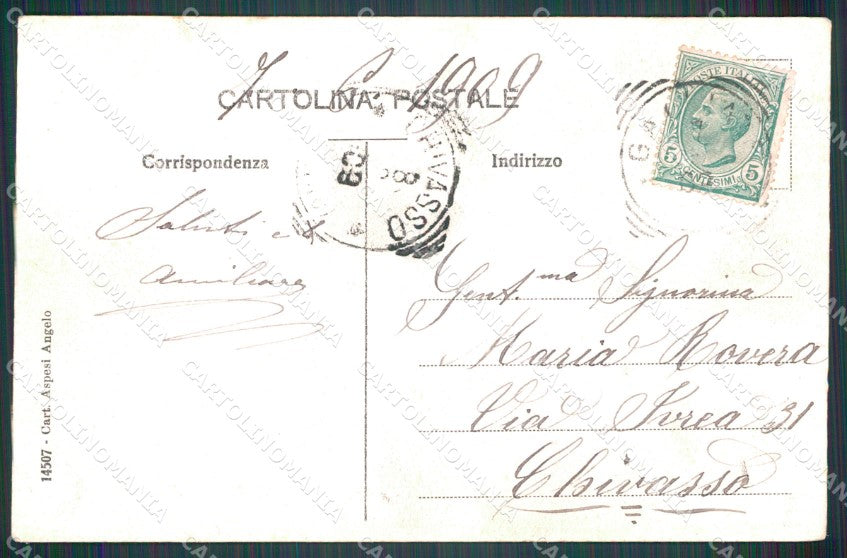 7 - 6 1909
CARTOLINA POSTALE
Corrispondenza
Indirizzo
CHIVASSO
8
09
POSTE ITALI
5 5
CENTESIMI
Saluti
Gent.ma Signorina
Maria Rovera
Via Ivrea 31
Chivasso
14507 - Cart. Aspesi Angelo
CARTOLINOMANIA